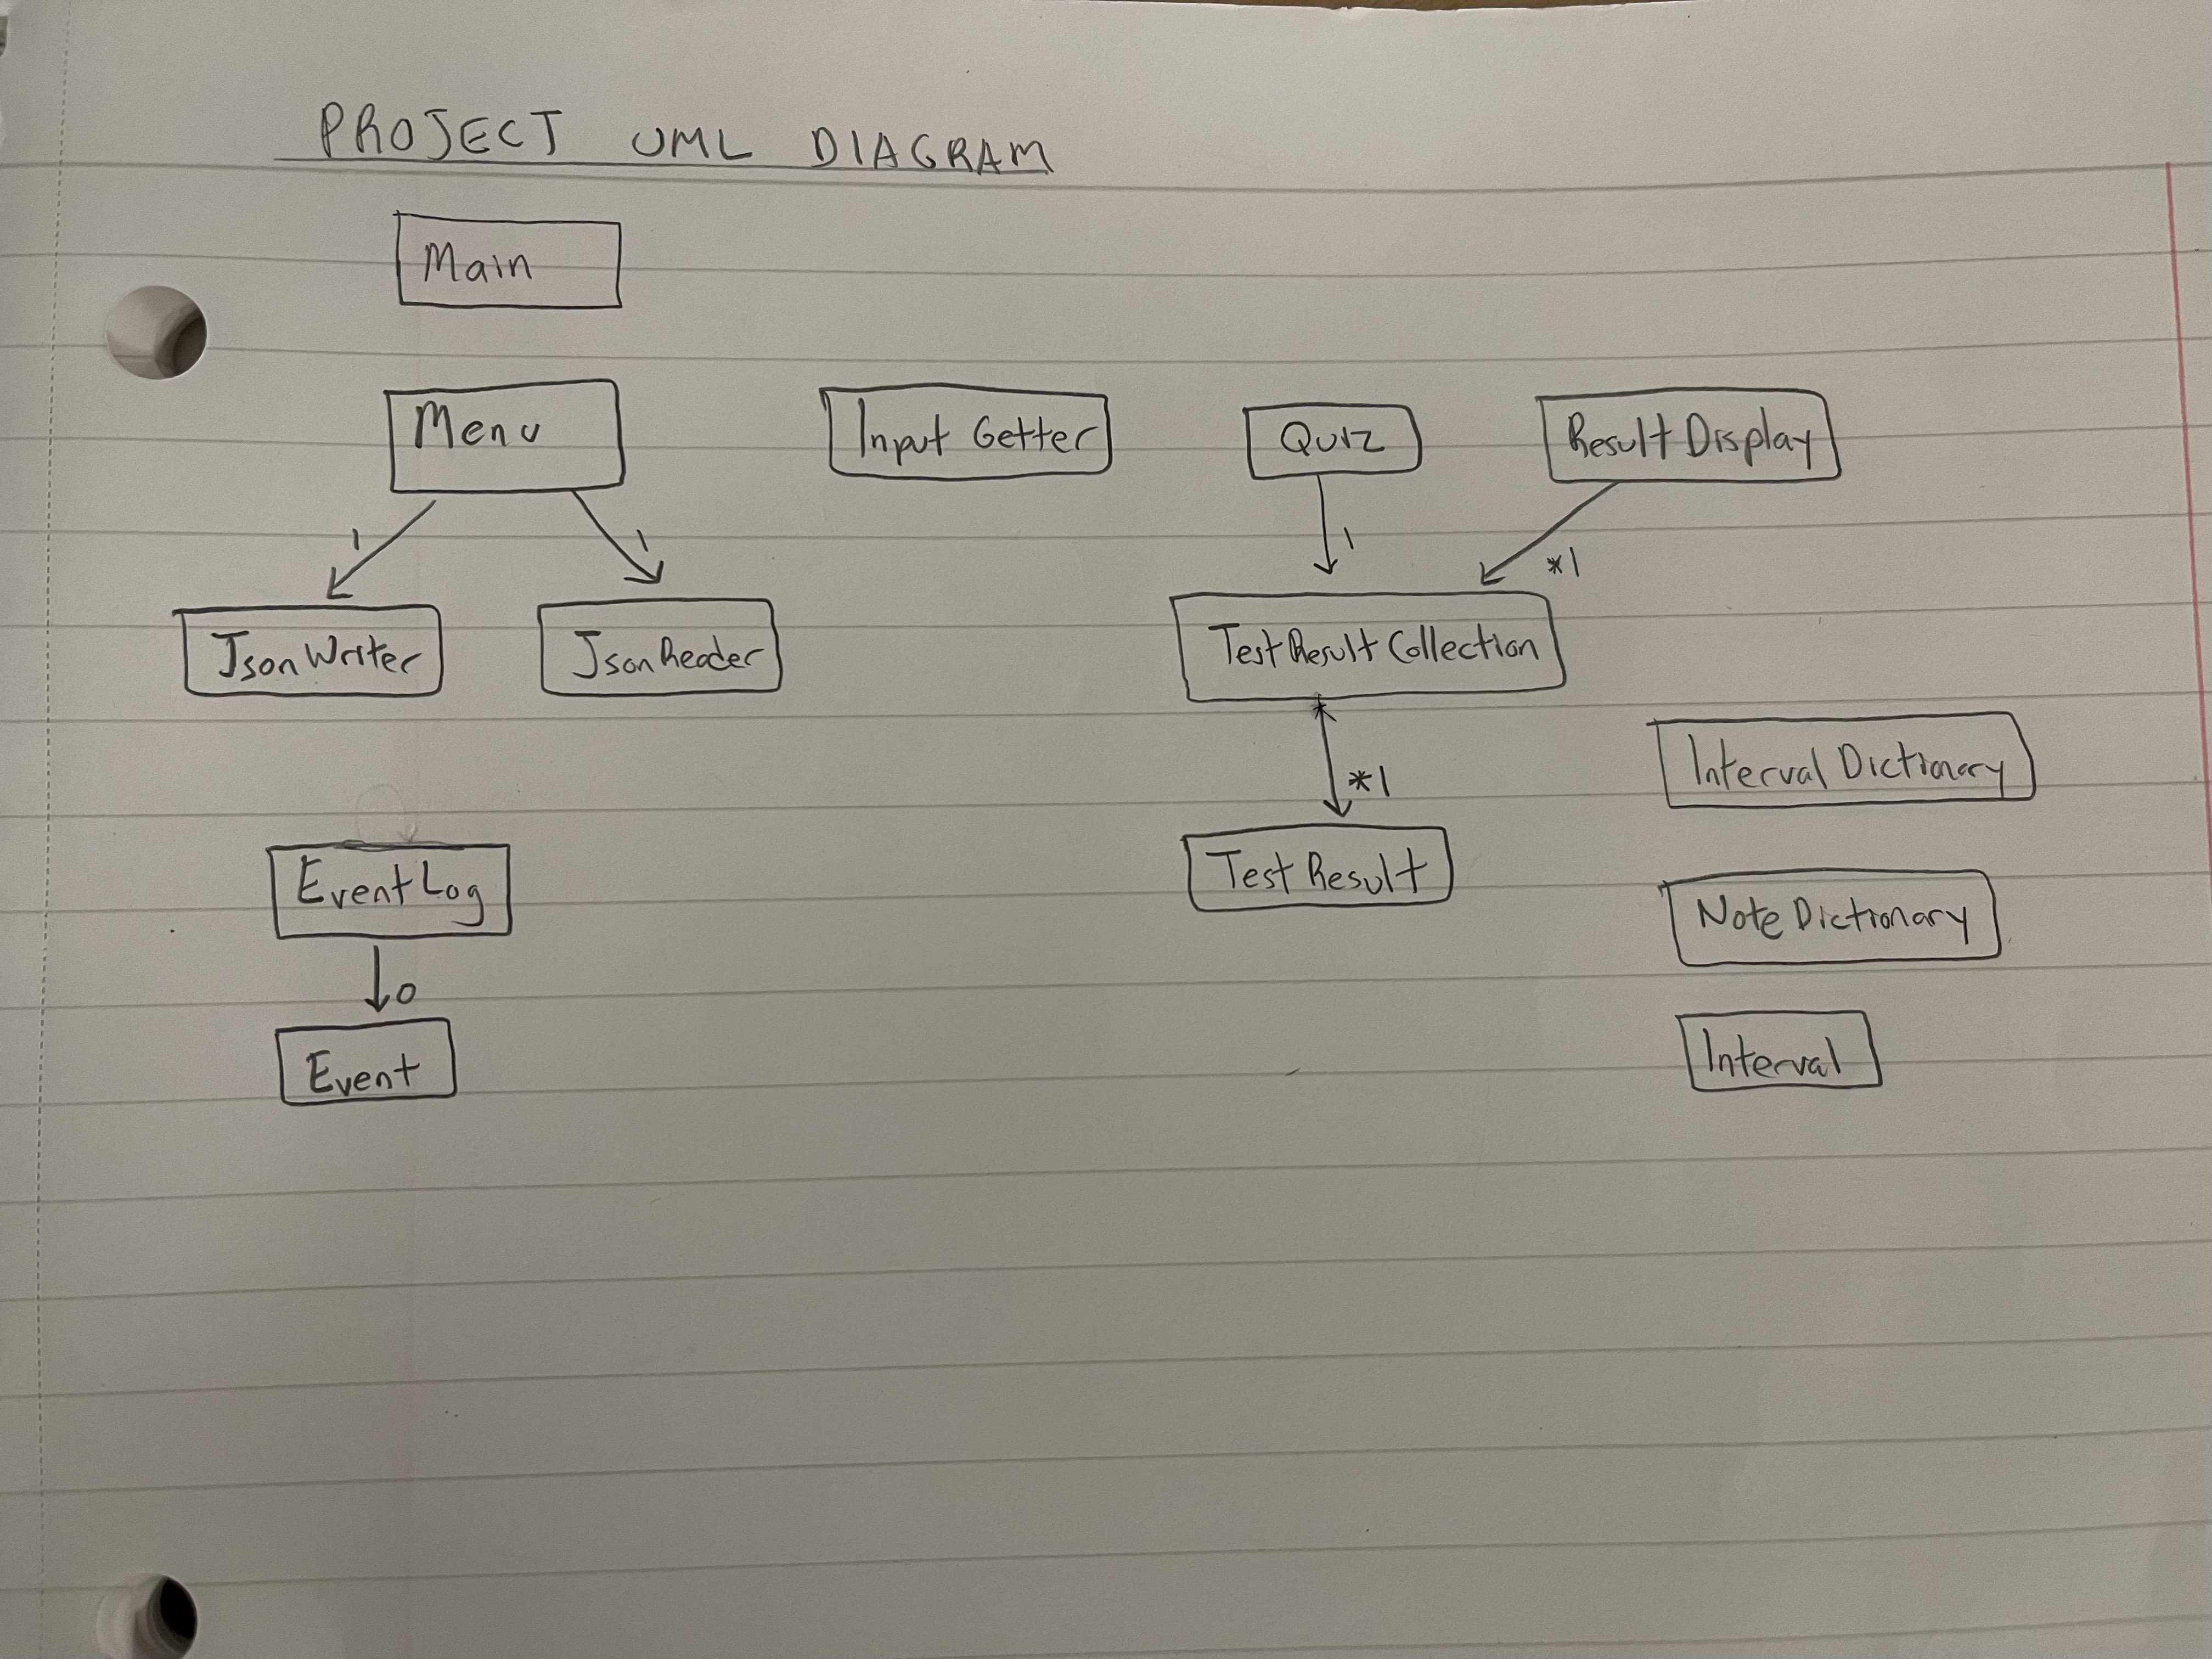 PROJECT UML DIAGRAM
Main
Menu
Input Getter
Quiz
Result Display
1
1
1
*1
JsonWriter
JsonReader
TestResultCollection
*1
Interval Dictionary
EventLog
Test Result
Note Dictionary
0
Event
Interval